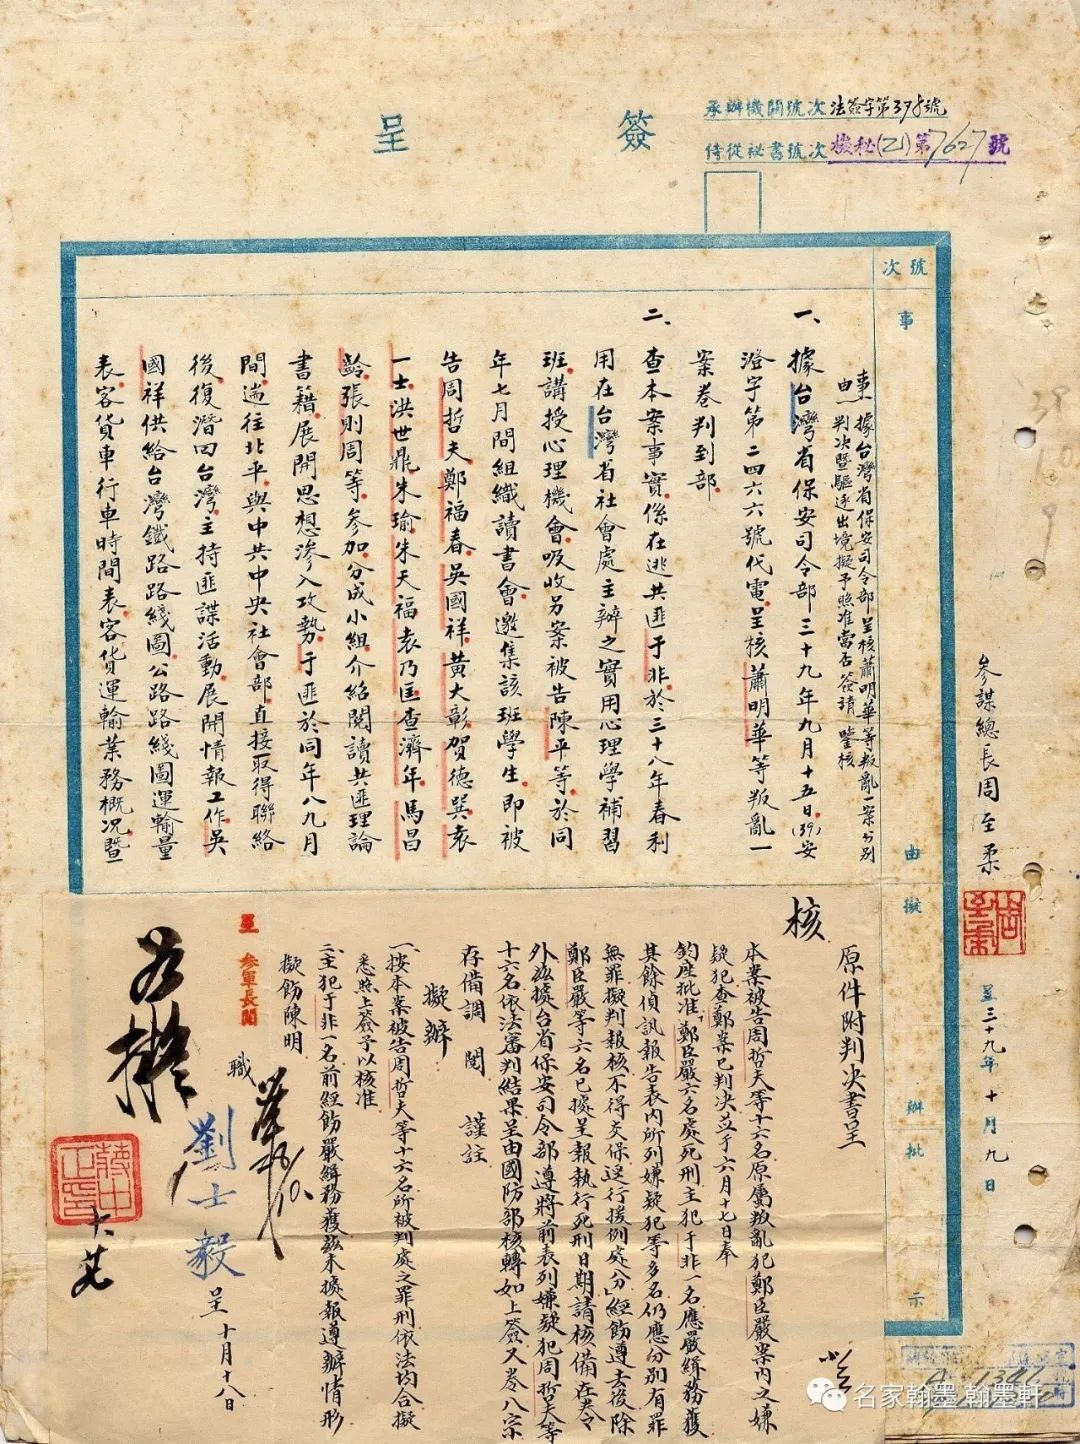 簽呈
承辦機關號次 法簽字第398號
侍從祕書號次 機秘(乙)第7627號
號次
事由擬辦批示
參謀總長周至柔
呈 三十九年十月九日
事由 據台灣省保安司令部呈核蕭明華等叛亂一案分別
判決暨驅逐出境擬予照准當否簽請鑒核
一、據台灣省保安司令部三十九年九月十五日(39)安
澄字第二四六六號代電呈核蕭明華等叛亂一
案卷判到部
二、查本案事實係在逃共匪于非於三十八年春利
用在台灣省社會處主辦之實用心理學補習
班講授心理機會吸收另案被告陳平等於同
年七月間組織讀書會邀集該班學生即被
告周哲夫鄭福春吳國祥黃大彰賀德巽袁
一士洪世鼎朱瑜朱天福袁乃匡查濟年馬昌
齡張則周等參加分成小組介紹閱讀共匪理論
書籍展開思想滲入攻勢于匪於同年八九月
間遄往北平與中共中央社會部直接取得聯絡
後復潛回台灣主持匪諜活動展開情報工作吳
國祥供給台灣鐵路路綫圖公路路綫圖運輸量
表客貨車行車時間表客貨運輸業務概況暨
原件附判決書呈
核
本案被告周哲夫等十六名原屬叛亂犯鄭臣嚴案內之嫌
疑犯查鄭案已判決並于六月十七日奉
鈞座批准「鄭臣嚴六名處死刑主犯于非一名應嚴緝務獲
其餘偵訊報告表內所列嫌疑犯等多名仍應分別有罪
無罪擬判報核不得交保逕行援例處分」經飭遵去後除
鄭臣嚴等六名已據呈報執行死刑日期請核備在卷
外茲據台省保安司令部遵將前表列嫌疑犯周哲夫等
十六名依法審判結果呈由國防部核轉如上簽又卷八宗
存備調閱 謹註
擬辦
一、按本案被告周哲夫等十六名所被判處之罪刑依法均合擬
悉照上簽予以核准
二、主犯于非一名前經飭嚴緝務獲茲未據報遵辦情形
擬飭陳明
職 劉士毅 呈 十月十八日
如擬
蔣中正印
名家翰墨 翰墨軒